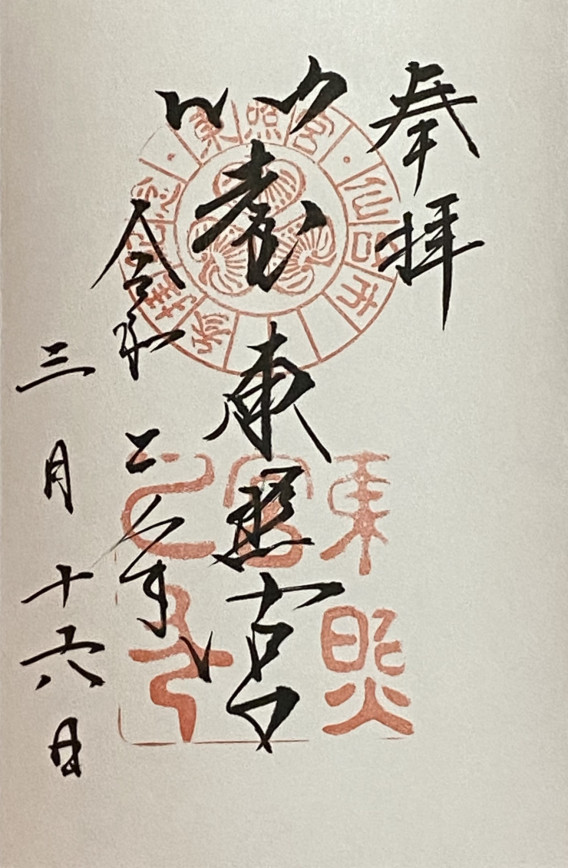 奉拝
仙臺東照宮
令和二年
三月十六日
東照宮
仙台市
東照
宮